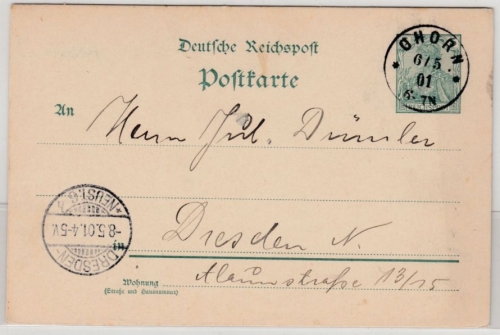 Deutsche Reichspost
Postkarte
* OHORN *
6/5
01
6-7N
An
Herrn Jul. Dümler
DRESDEN-
-8.5.01.4-5V.
*NEUST.6.
in
Dresden N.
Wohnung
(Straße und Hausnummer)
Alaunstraße 13/15